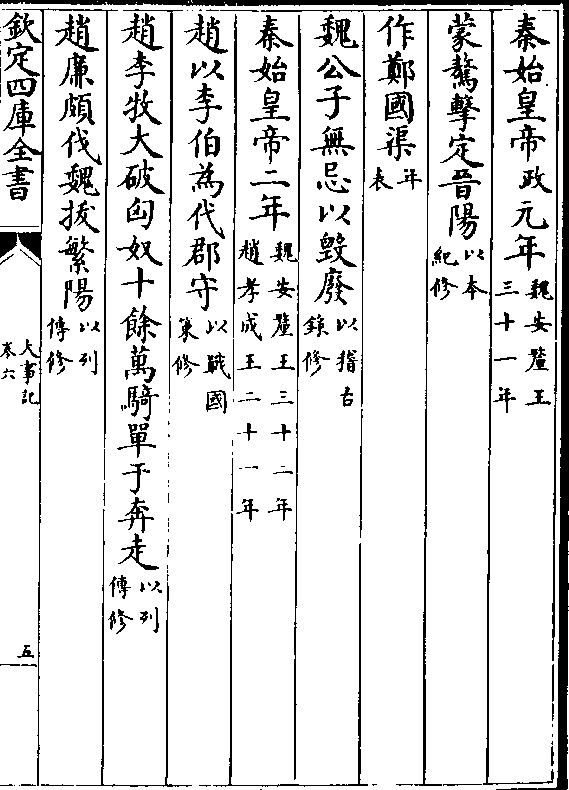 秦始皇帝政元年魏安釐王三十一年
蒙驁擊定晉陽以本紀修
作鄭國渠年表
魏公子無忌以毀廢以稽古錄修
秦始皇帝二年魏安釐王三十二年趙孝成王二十一年
趙以李伯為代郡守以戰國策修
趙李牧大破匈奴十餘萬騎單于奔走以列傳修
趙廉頗伐魏拔繁陽以列傳修
欽定四庫全書
大事記
卷六
五